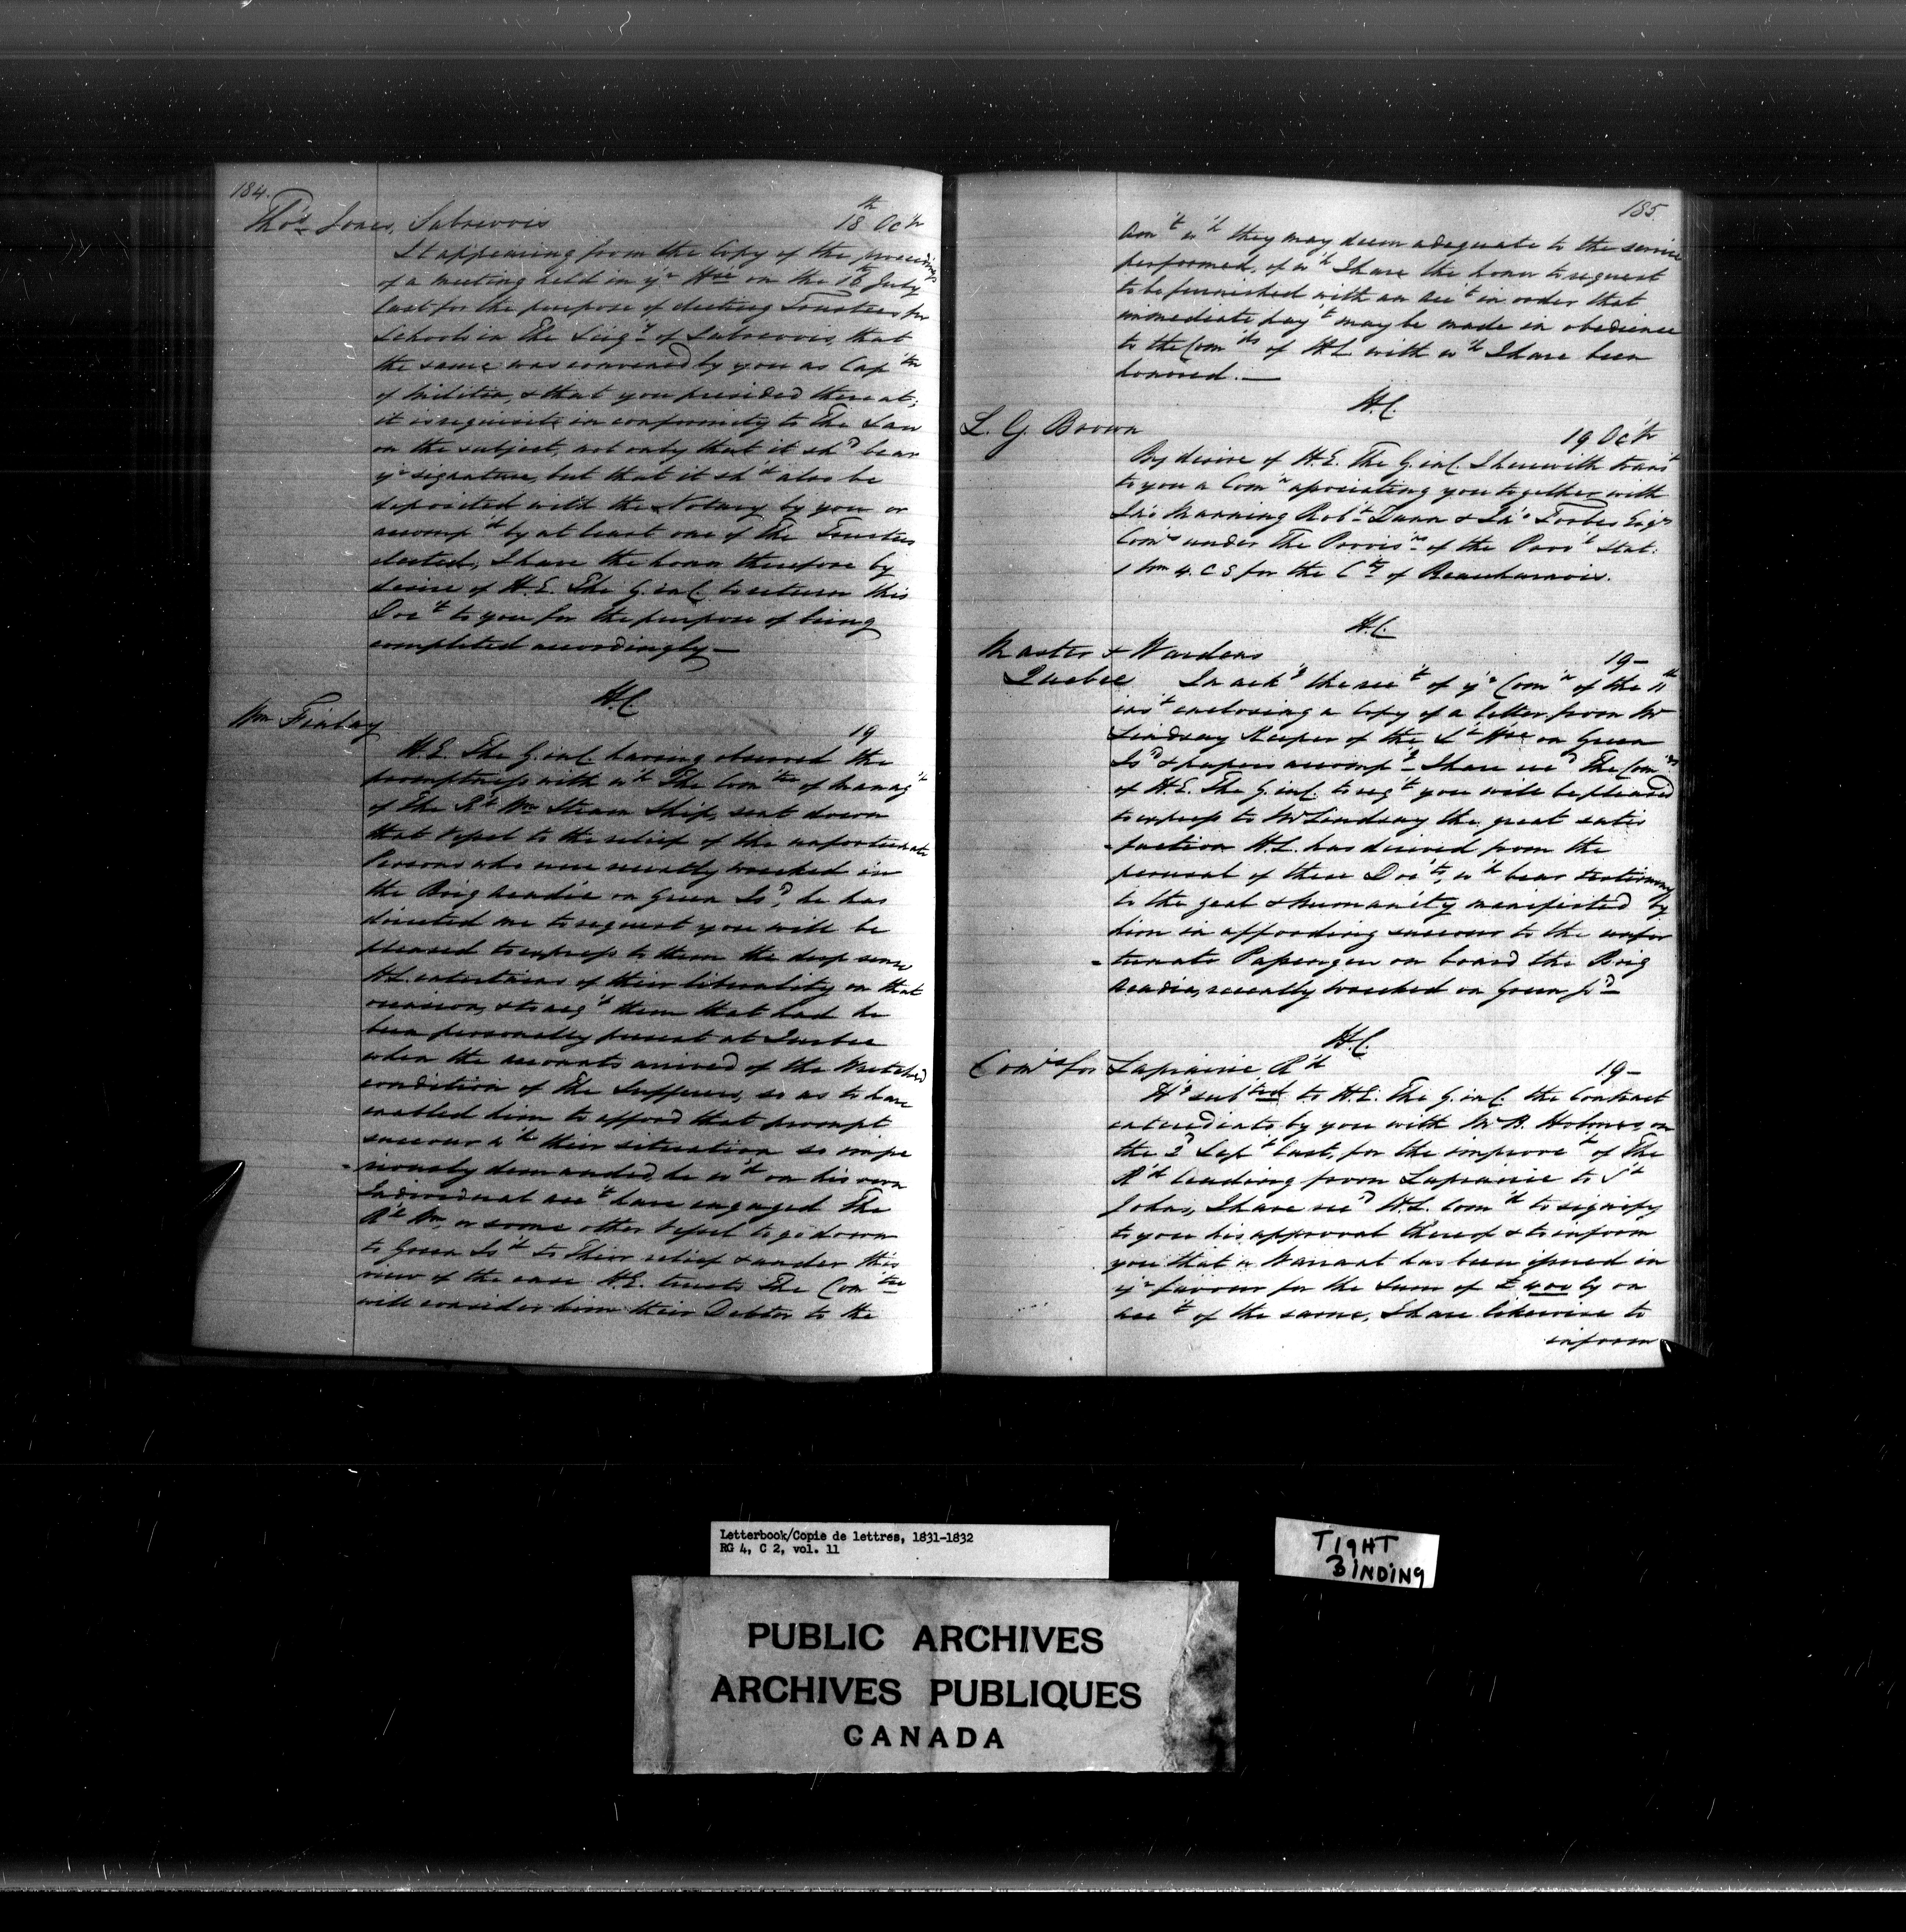 184.
Thos Jones, Sabrevois 18th Oc'tr
It appearing from the Copy of the proceedings
of a meeting held in yr Hse on the 16th July
last for the purpose of electing Trustees for
Schools in the Seigy of Sabrevois, that
the same was convened by you as Cap'tn
of Militia, & that you presided thereat;
it is requisite in conformity to the Law
on the subject, not only that it sh'd bear
yr signature, but that it sh'd also be
deposited with the Notary by you or
accomp'd by at least one of the Trustees
elected, I have the honor therefore by
desire of H.E. The G. in C. to return this
Doc't to you for the purpose of being
completed accordingly —
H.C.
Wm Finlay 19
H.E. The G. in C. having observed the
promptness with w'h The Com'tee of Manag't
of the R'l Wm Steam Ship, sent down
that Vessel to the relief of the unfortunate
Persons who were recently wrecked in
the Brig Acadia on Green Is'd, he has
directed me to request you will be
pleased to express to them the deep sense
H.E. entertains of their liberality on that
occasion, & to them that had he
been personally present at Quebec
when the accounts arrived of the Wretched
condition of the Sufferers, so as to have
enabled him to afford that prompt
succour w'h their situation so impe
-riously demanded, he w'd on his own
Individual acc't have engaged The
R'l Wm, or some other Vessel to go down
to Green Is'd to their relief & under this
view of the case H.E. trusts The Com'tee
will consider him their Debtor to the
185.
Am't w'h they may deem adequate to the service
performed, of w'h I have the honor to request
to be furnished with an acc't in order that
immediate pay't may be made in obedience
to the Com'ds of H.E. with w'h I have been
honored. —
H.C.
L. G. Brown 19 Oc'tr
By desire of H.E. The G. in C. I herewith trans't
to you a Com'n apointing you together with
Jno Manning Rob't Dunn & Jno Forbes Esqrs
Comrs under the Provisns of the Prov'l Stat:
1 Wm 4. C 5 for the Cty of Beauharnois.
H.C.
Master & Wardens 19 —
Quebec In ack'g the rec't of yr Com'n of the 11th
ins't enclosing a Copy of a letter from Mr
Lindsay Keeper of the L't Hse on Green
Is'd & papers accomp'g I have rec'd The Com'ds
of H.E. The G. in C. to req't you will be pleased
to express to Mr Lindsay the great satis
-faction H.E. has derived from the
perusal of these Doc'ts, w'h bear testimony
to the zeal & humanity manifested by
him in affording succour to the unfor
-tunate Passengers on board the Brig
Acadia, recently wrecked on Green Is'd
H.C.
Com'rs for Laprairie R'd 19 —
H'g sub'ted to H.E. The G. in C. the Contract
entered into by you with Mr B. Holmes on
the 2'd Sep't last, for the improve't of the
R'd leading from Laprairie to S't
Johns, I have rec'd H.E. Com'ds to signify
to you his approval thereof & to inform
you that a Warrant has been issued in
yr favour for the Sum of £400 Cy on
acc't of the same, I have likewise to
inform
Letterbook/Copie de lettres, 1831-1832
RG 4, C 2, vol. 11
TIGHT
BINDING
PUBLIC ARCHIVES
ARCHIVES PUBLIQUES
CANADA